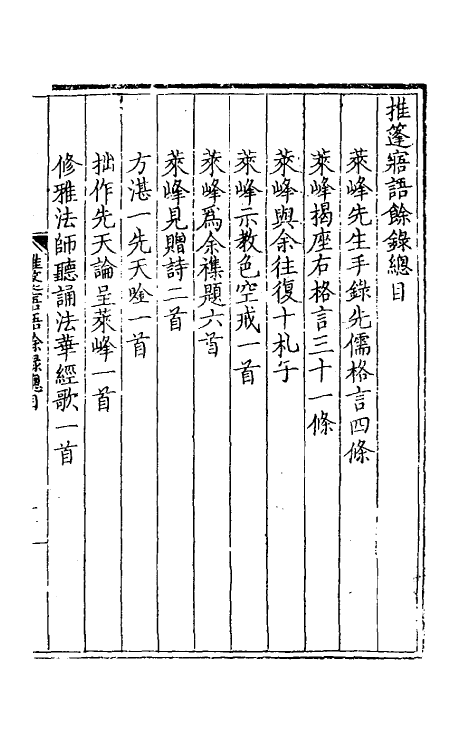 推篷寤語餘錄總目
萊峰先生手錄先儒格言四條
萊峰揭座右格言三十一條
萊峰與余往復十札子
萊峰示教色空戒一首
萊峰爲余襍題六首
萊峰見贈詩二首
方湛一先天唫一首
拙作先天論呈萊峰一首
修雅法師聽誦法華經歌一首
推篷寤語餘錄總目